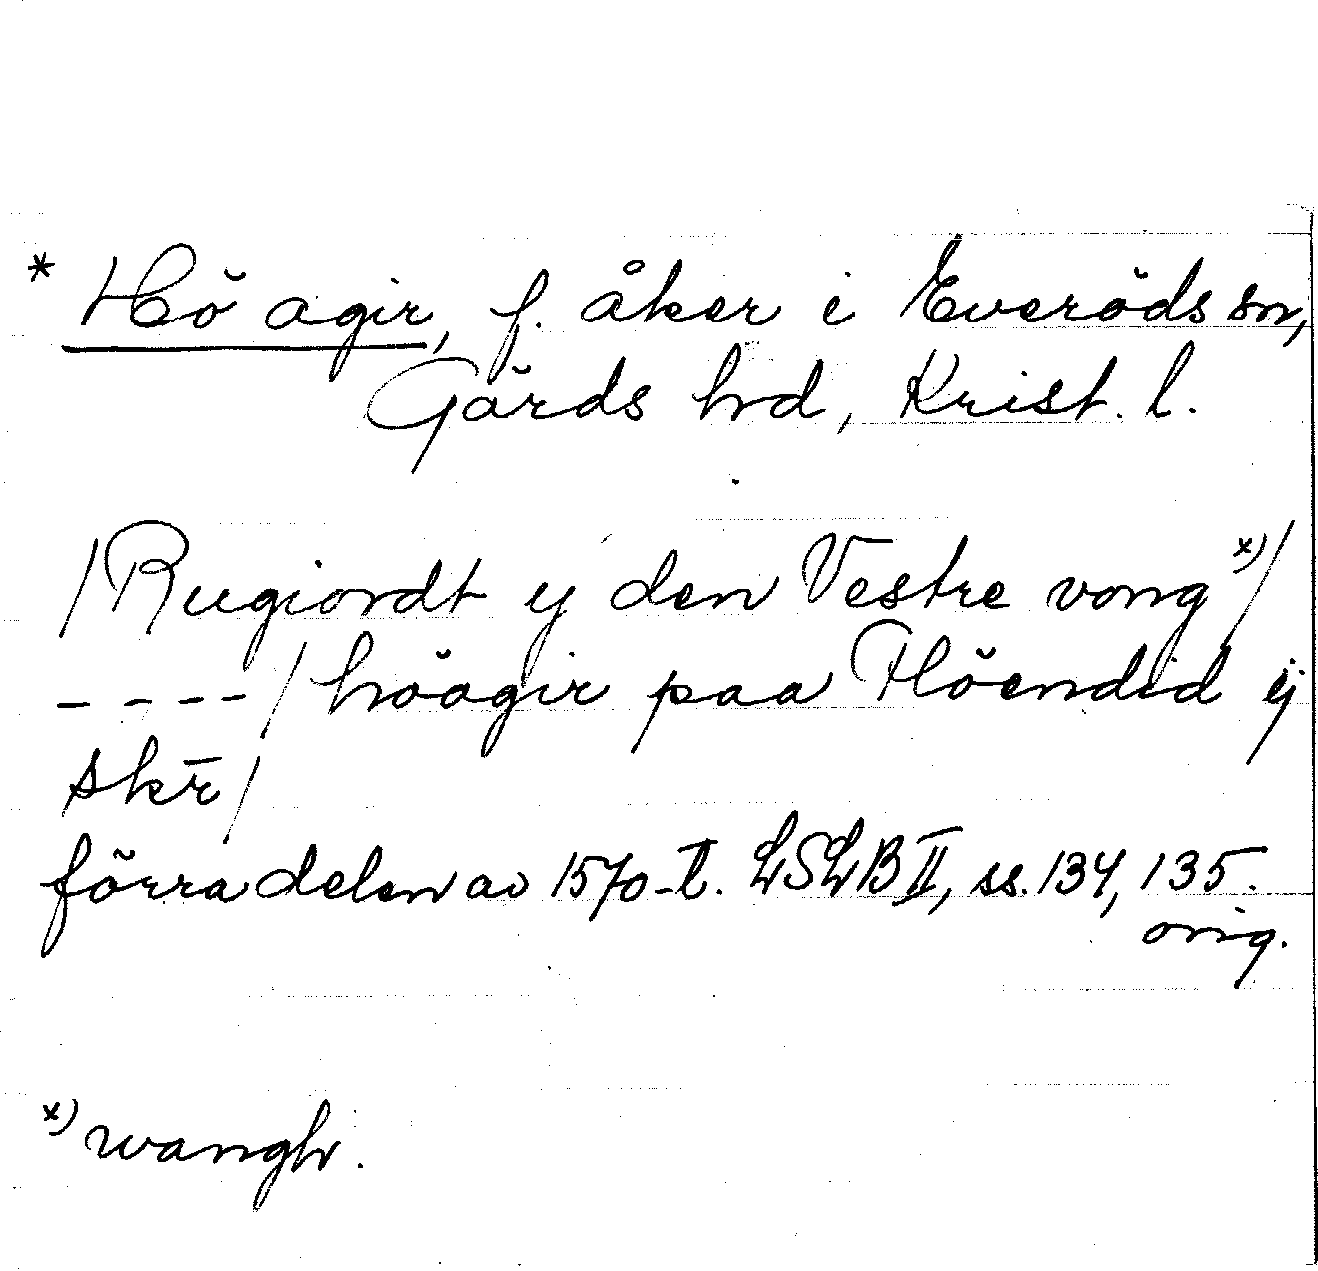 * Hö agir, f. åker i Everöds sn,
Gärds hd, Krist. l.
/Rugiordt y den Vestre vong x)/
- - - - / höagir paa Höendid ij
skr̄/
förra delen av 1570-t. LSLB II, ss. 134, 135.
orig.
x) wangh.